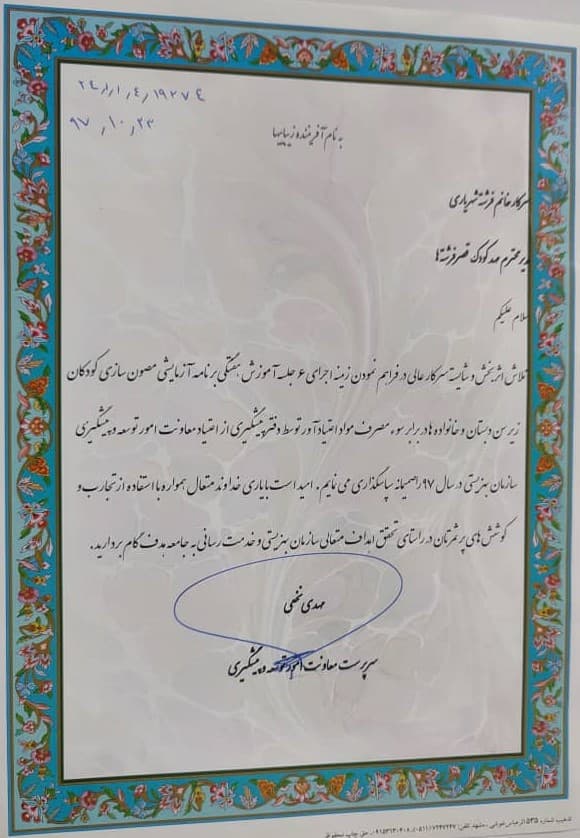 ۲۴/۱۱/۴/۱۹۲۷۴
۹۷/۱۰/۲۳
به نام آفریننده زیباییها
سرکار خانم فرشته شهریاری
مدیر محترم مهد کودک قصر فرشته ها
سلام علیکم
تلاش اثر بخش و شایسته سرکار عالی در فراهم نمودن زمینه اجرای ۶ جلسه آموزش هفتگی برنامه آزمایشی مصون سازی کودکان
زیر سن دبستان و خانواده ها در برابر سوء مصرف مواد اعتیاد آور توسط دفتر پیشگیری از اعتیاد معاونت امور توسعه و پیشگیری
سازمان بهزیستی در سال ۹۷ را صمیمانه سپاسگذاری می نمایم. امید است با یاری خداوند متعال همواره با استفاده از تجارب و
کوشش های پر ثمرتان در راستای تحقق اهداف متعالی سازمان بهزیستی و خدمت رسانی به جامعه هدف گام بردارید.
مهدی نخعی
سرپرست معاونت امور توسعه و پیشگیری
تذهیب شماره ۵۳۵ اثر عباس غوثی - مشهد تلفن: ۰۵۱۱۱۷۲۴۷۲۴۷ - ۰۹۱۵۳۱۳۰۴۰۸ حق چاپ محفوظ